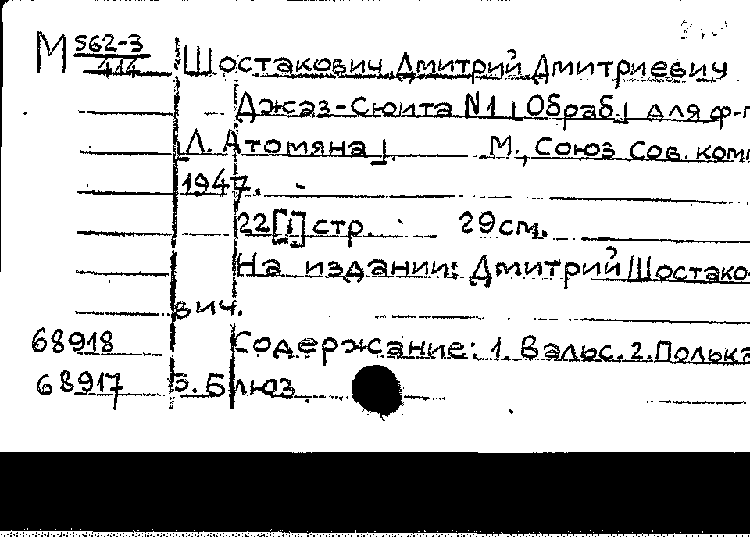 М 562-3/414 Шостакович, Дмитрий Дмитриевич
Джаз-Сюита №1 [Обраб.] для ф-п
[Л. Атомяна]. М., Союз Сов. комп
1947.
22[1] стр. 29см.
На издании: Дмитрий Шостако-
вич.
68918 Содержание: 1. Вальс. 2. Полька
68917 3. Блюз